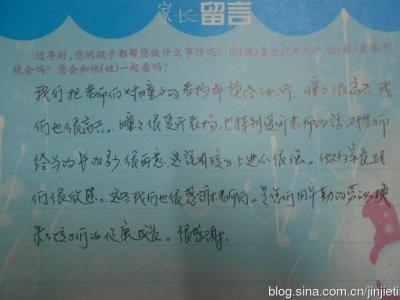 家长留言
过年时,您的孩子都帮您做什么事情呢?他(她)喜欢过年吗?他(她)看春节
晚会吗?您会和他(她)一起看吗?
我们把老师们对瞳瞳的表扬都转给她听 瞳瞳很高兴 我
们也很高兴。瞳瞳很喜欢表扬,也特别在乎老师的话,对老师
给予的 很在意,这说明孩子上进心很强。做为家长我
们很欣慰。这些我们也很感谢老师们。是您们用辛勤的劳动换
来了孩子们的健康成长。很感谢.
blog.sina.com.cn/jinjieti